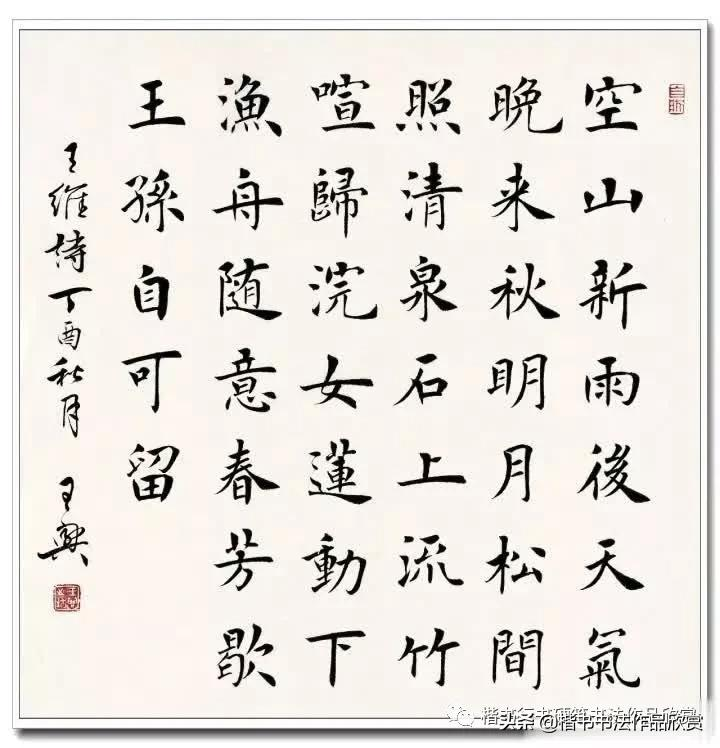 空山新雨後天氣
晚来秋明月松間
照清泉石上流竹
喧歸浣女蓮動下
漁舟随意春芳歇
王孫自可留
王維詩丁酉秋月 王
楷书行书硬笔书法作品欣赏
头条@楷书书法作品欣赏